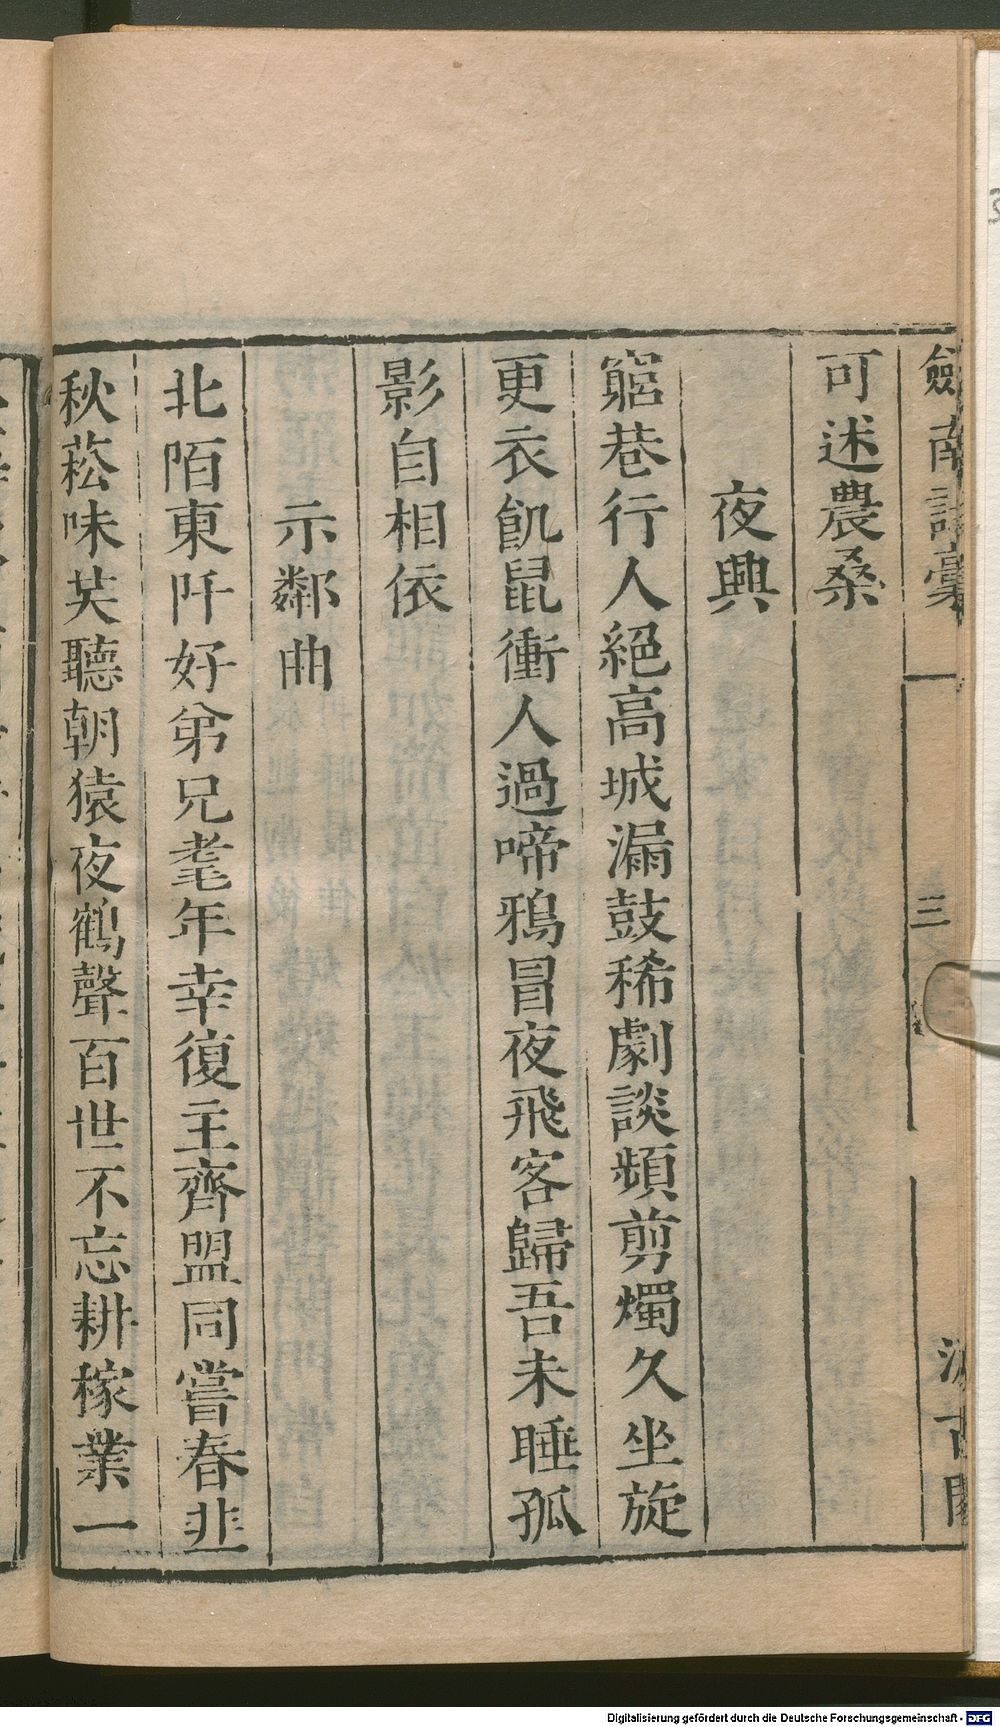 劍南詩稾 三 汲古閣
可述農桑
夜興
窮巷行人絕高城漏鼓稀劇談頻剪燭久坐旋
更衣飢鼠衝人過啼鴉冒夜飛客歸吾未睡孤
影自相依
示鄰曲
北陌東阡好弟兄耄年幸復主齊盟同嘗春韭
秋菘味共聽朝猿夜鶴聲百世不忘耕稼業一
Digitalisierung gefördert durch die Deutsche Forschungsgemeinschaft - DFG